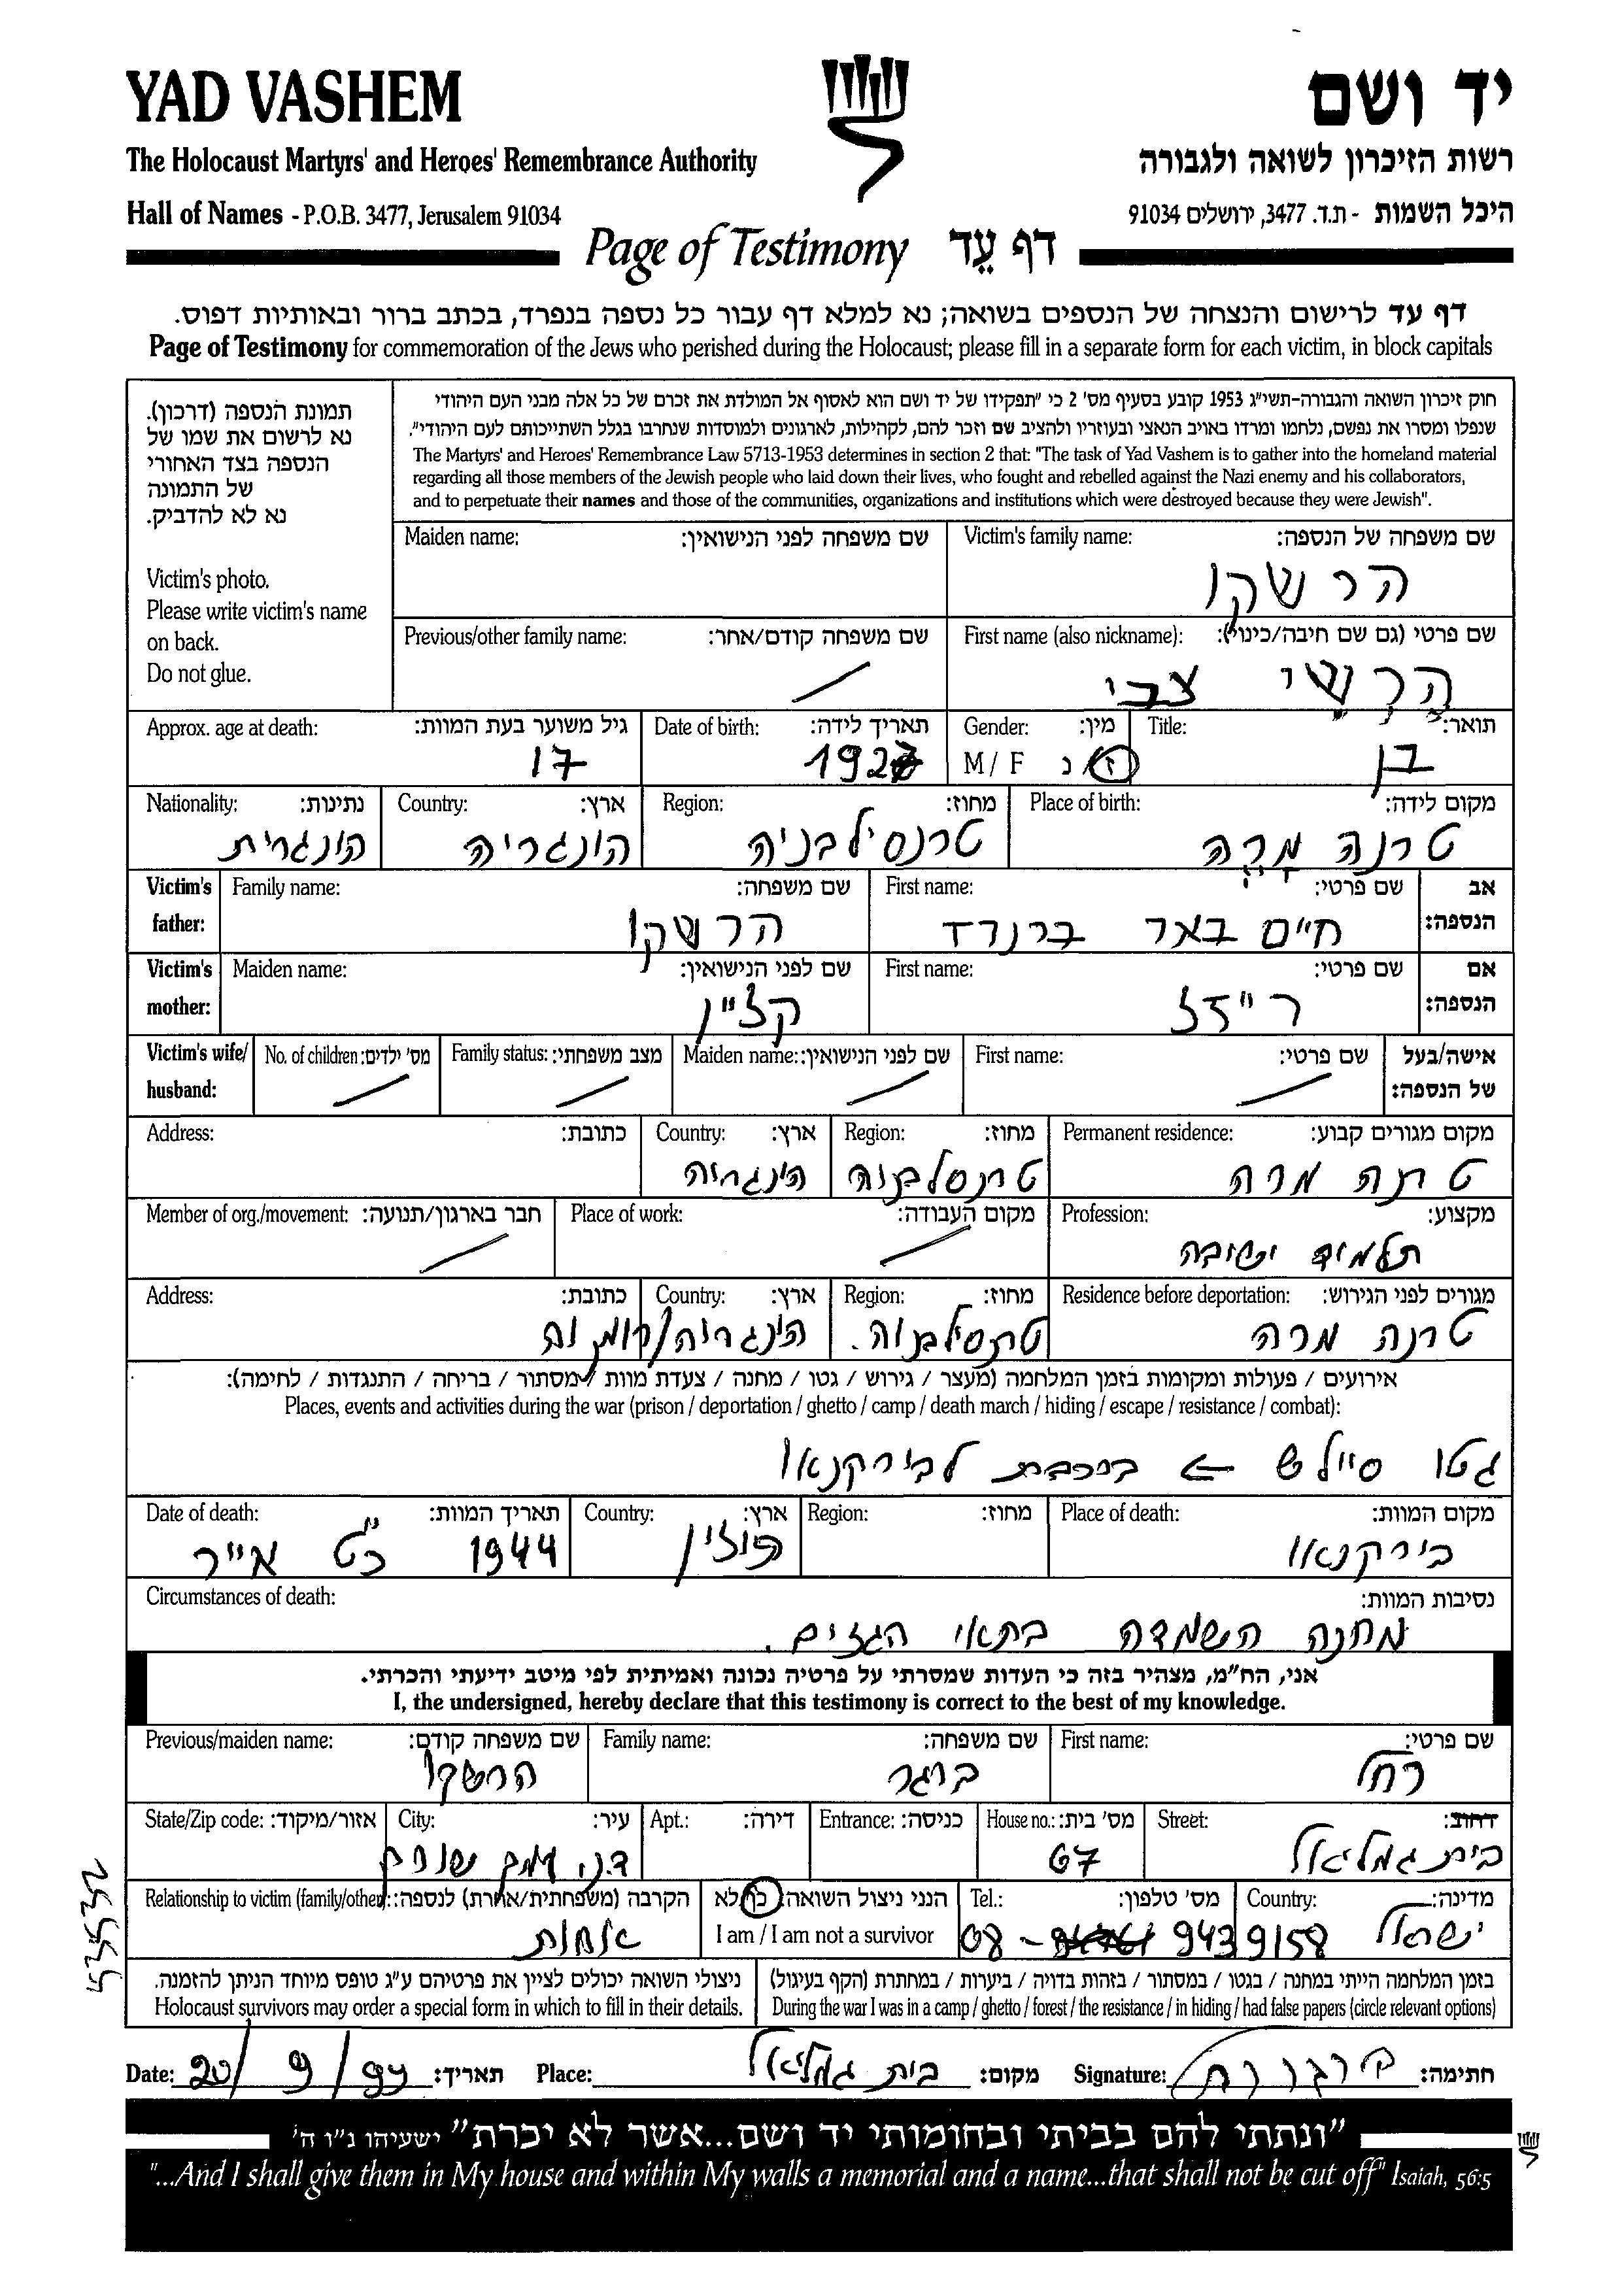 YAD VASHEM
יד ושם
The Holocaust Martyrs' and Heroes' Remembrance Authority
רשות הזיכרון לשואה ולגבורה
Hall of Names - P.O.B. 3477, Jerusalem 91034
היכל השמות - ת.ד. 3477, ירושלים 91034
Page of Testimony דף עֵד
דף עד לרישום והנצחה של הנספים בשואה; נא למלא דף עבור כל נספה בנפרד, בכתב ברור ובאותיות דפוס.
Page of Testimony for commemoration of the Jews who perished during the Holocaust; please fill in a separate form for each victim, in block capitals
תמונת הנספה (דרכון).
נא לרשום את שמו של
הנספה בצד האחורי
של התמונה
נא לא להדביק.
Victim's photo.
Please write victim's name
on back.
Do not glue.
חוק זיכרון השואה והגבורה-תשי"ג 1953 קובע בסעיף מס' 2 כי "תפקידו של יד ושם הוא לאסוף אל המולדת את זכרם של כל אלה מבני העם היהודי
שנפלו ומסרו את נפשם, נלחמו ומרדו באויב הנאצי ובעוזריו ולהציב שם וזכר להם, לקהילות, לארגונים ולמוסדות שנחרבו בגלל השתייכותם לעם היהודי".
The Martyrs' and Heroes' Remembrance Law 5713-1953 determines in section 2 that: "The task of Yad Vashem is to gather into the homeland material
regarding all those members of the Jewish people who laid down their lives, who fought and rebelled against the Nazi enemy and his collaborators,
and to perpetuate their names and those of the communities, organizations and institutions which were destroyed because they were Jewish".
Victim's family name: שם משפחה של הנספה:
הרשקו
Maiden name: שם משפחה לפני הנישואין:
First name (also nickname): שם פרטי (גם שם חיבה/כינוי):
הרשי צבי
Previous/other family name: שם משפחה קודם/אחר:
Title: תואר:
בן
Gender: מין:
M / F ז/נ
Date of birth: תאריך לידה:
1927
Approx. age at death: גיל משוער בעת המוות:
17
Place of birth: מקום לידה:
טרנה מרה
Region: מחוז:
טרנסילבניה
Country: ארץ:
הונגריה
Nationality: נתינות:
הונגרית
Victim's father: אב הנספה:
First name: שם פרטי:
חיים באר ברנרד
Family name: שם משפחה:
הרשקו
Victim's mother: אם הנספה:
First name: שם פרטי:
רייזל
Maiden name: שם לפני הנישואין:
קליין
Victim's wife/ husband: אישה/בעל של הנספה:
First name: שם פרטי:
Maiden name: שם לפני הנישואין:
Family status: מצב משפחתי:
No. of children: מס' ילדים:
Permanent residence: מקום מגורים קבוע:
טרנה מרה
Region: מחוז:
טרנסלבניה
Country: ארץ:
הונגריה
Address: כתובת:
Profession: מקצוע:
תלמיד ישיבה
Place of work: מקום העבודה:
Member of org./movement: חבר בארגון/תנועה:
Residence before deportation: מגורים לפני הגירוש:
טרנה מרה
Region: מחוז:
טרנסילבניה.
Country: ארץ:
הונגריה/רומניה
Address: כתובת:
אירועים / פעולות ומקומות בזמן המלחמה (מעצר / גירוש / גטו / מחנה / צעדת מוות / מסתור / בריחה / התנגדות / לחימה):
Places, events and activities during the war (prison / deportation / ghetto / camp / death march / hiding / escape / resistance / combat):
גטו סיילש ← ברכבת לבירקנאו
Place of death: מקום המוות:
בירקנאו
Region: מחוז:
Country: ארץ:
פולין
Date of death: תאריך המוות:
1944 כ"ט אייר
Circumstances of death: נסיבות המוות:
מחנה השמדה בתאי הגזים.
אני, הח"מ, מצהיר בזה כי העדות שמסרתי על פרטיה נכונה ואמיתית לפי מיטב ידיעתי והכרתי.
I, the undersigned, hereby declare that this testimony is correct to the best of my knowledge.
First name: שם פרטי:
רחל
Family name: שם משפחה:
ברגר
Previous/maiden name: שם משפחה קודם:
הרשקו
Street: רחוב:
בית גמליאל
House no.: מס' בית:
67
Entrance: כניסה:
Apt.: דירה:
City: עיר:
State/Zip code: אזור/מיקוד:
Country: מדינה:
ישראל
Tel.: מס' טלפון:
08- 9439158
הנני ניצול השואה: כן/לא
I am / I am not a survivor
Relationship to victim (family/other): הקרבה (משפחתית/אחרת) לנספה:
אחות
בזמן המלחמה הייתי במחנה / בגטו / במסתור / בזהות בדויה / ביערות / במחתרת (הקף בעיגול)
During the war I was in a camp / ghetto / forest / the resistance / in hiding / had false papers (circle relevant options)
ניצולי השואה יכולים לציין את פרטיהם ע"ג טופס מיוחד הניתן להזמנה.
Holocaust survivors may order a special form in which to fill in their details.
Date: 20/9/99 תאריך: Place: בית גמליאל מקום: Signature: חתימה:
"ונתתי להם בביתי ובחומותי יד ושם...אשר לא יכרת" ישעיהו נ"ו ה'
"...And I shall give them in My house and within My walls a memorial and a name...that shall not be cut off" Isaiah, 56:5